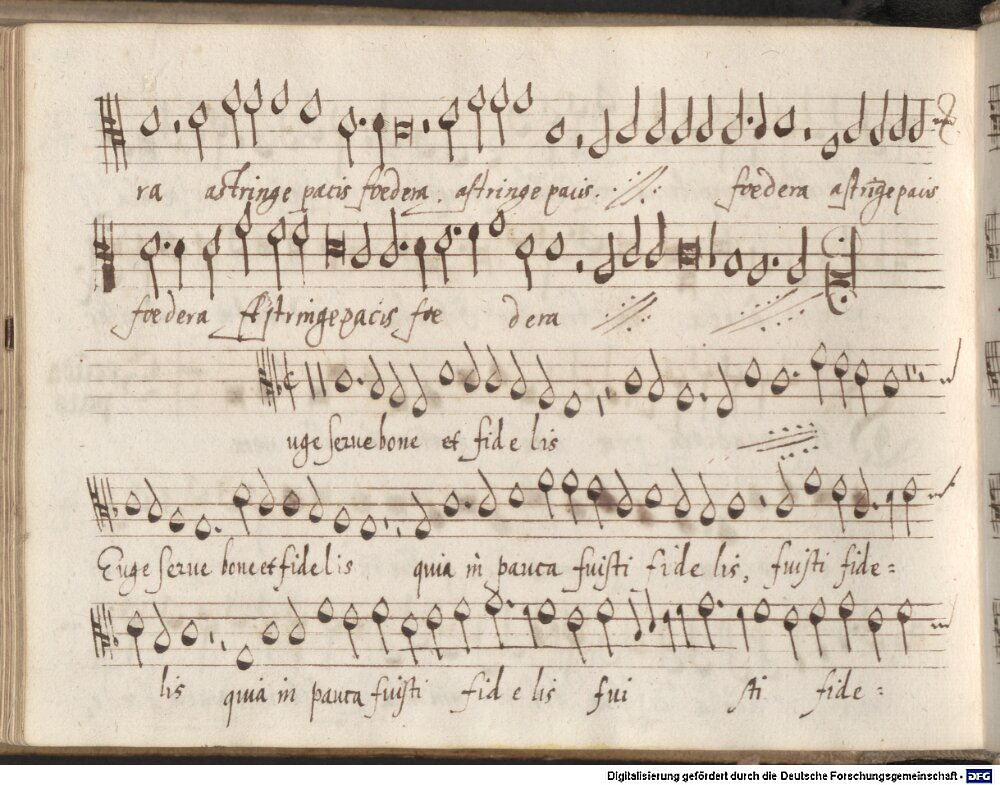 ra astringe pacis foedera. astringe pacis. foedera astrĩge pacis
foedera Astringe pacis foe dera
uge serve bone et fidelis
Euge serve bone et fidelis quia in pauca fuisti fidelis, fuisti fide=
lis quia in pauca fuisti fidelis fui sti fide=
Digitalisierung gefördert durch die Deutsche Forschungsgemeinschaft - DFG